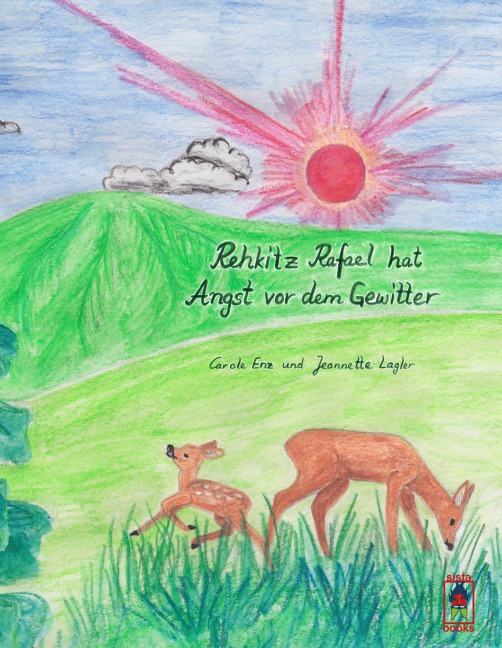 Rehkitz Rafael hat
Angst vor dem Gewitter
Carole Enz und Jeannette Lagler
sista
books